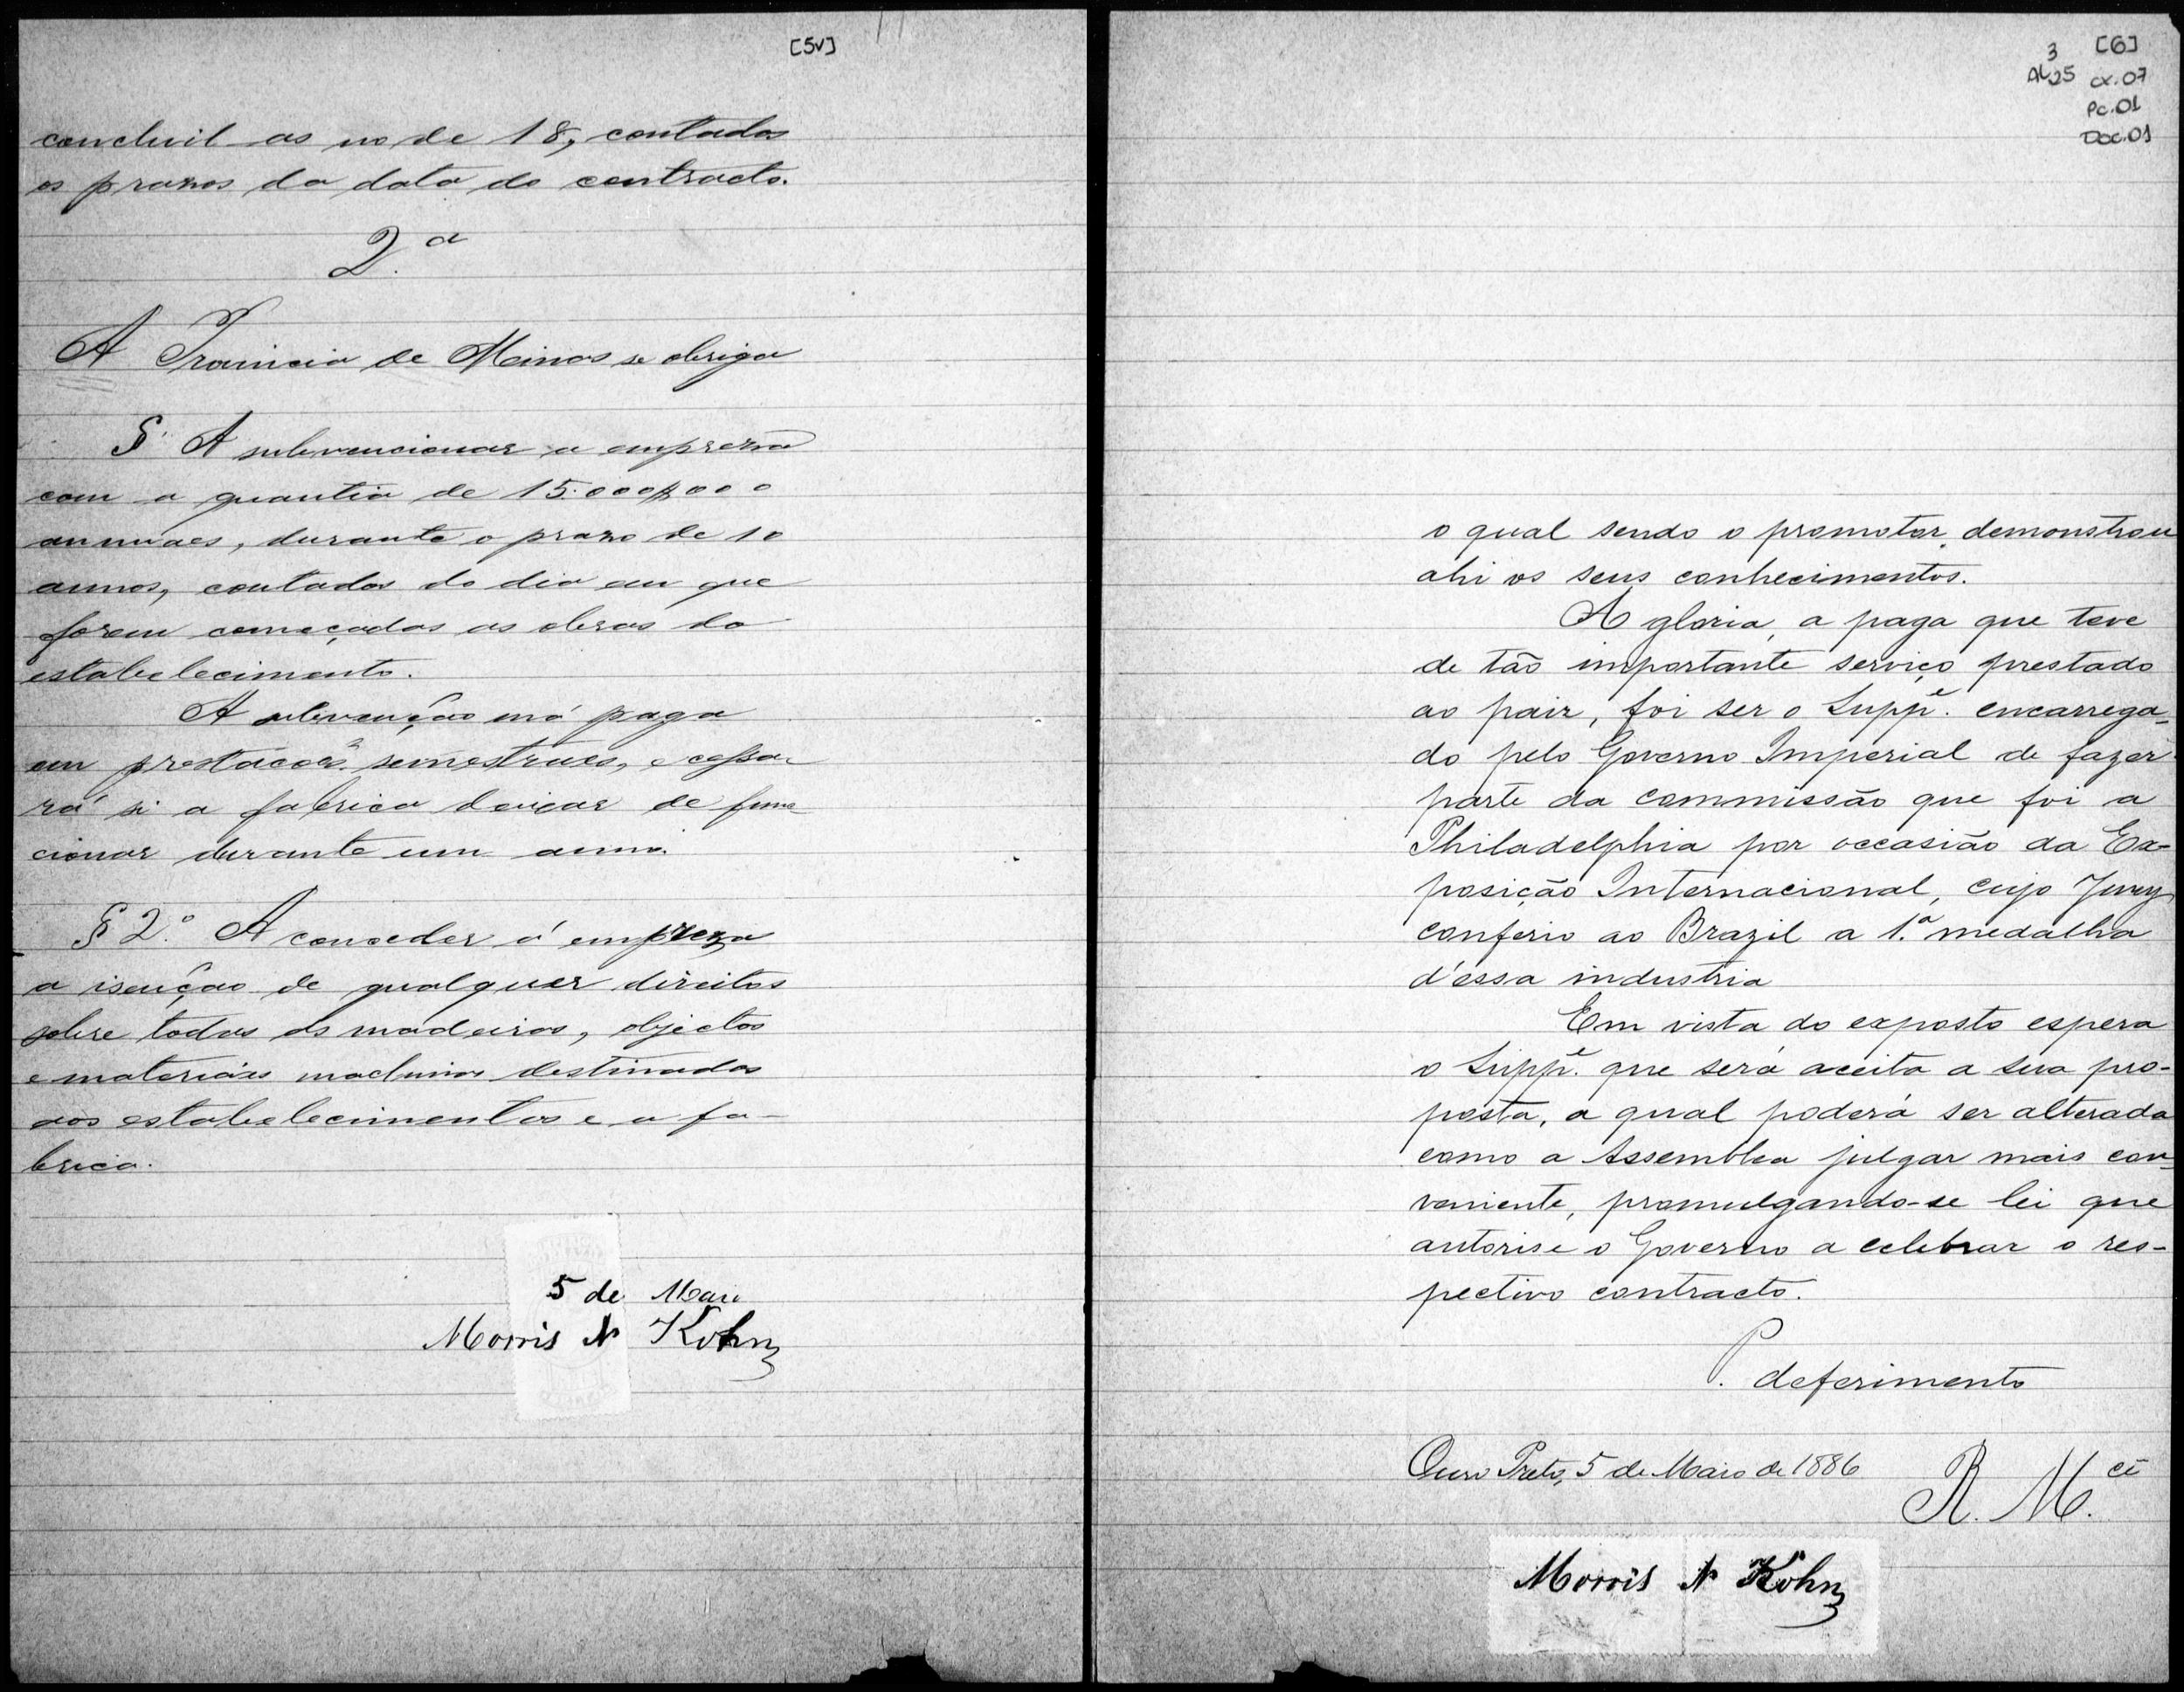 [5v]
concluil-as no de 18, contados
os prazos da data do contracto.
2.ª
A Provincia de Minas se obriga
§ A subvencionar a empreza
com a quantia de 15:000$000
annuaes, durante o prazo de 10
annos, contados do dia em que
forem começadas as obras do
estabelecimento.
A subvenção será paga
em prestações semestraes, e cessa-
rá si a fabrica deixar de func
cionar durante um anno.
§ 2.º A conceder á empreza
a isenção de qualquer direitos
sobre todas as madeiras, objectos
e materiáes machinas destinados
aos estabelecimentos e a fa-
brica.
5 de Maio
Morris N Kohn
[6]
3
AL25 cx.07
Pc.01
Doc.01
o qual sendo o promotor, demonstrou
ahi os seus conhecimentos.
A gloria, a paga que teve
de tão importante serviço prestado
ao paiz, foi ser o Suppe. encarrega-
do pelo Governo Imperial de fazer
parte da commissão que foi a
Philadelphia por occasião da Ex-
posição Internacional, cujo Jury
conferio ao Brazil a 1.ª medalha
d'essa industria
Em vista do exposto espera
o Suppe. que será aceita a sua pro-
posta, a qual poderá ser alterada
como a Assemblea julgar mais con-
veniente, promulgando-se lei que
autorise o Governo a celebrar o res-
pectivo contracto.
P. deferimento
Ouro Preto, 5 de Maio de 1886
R. M.ce
Morris N Kohn